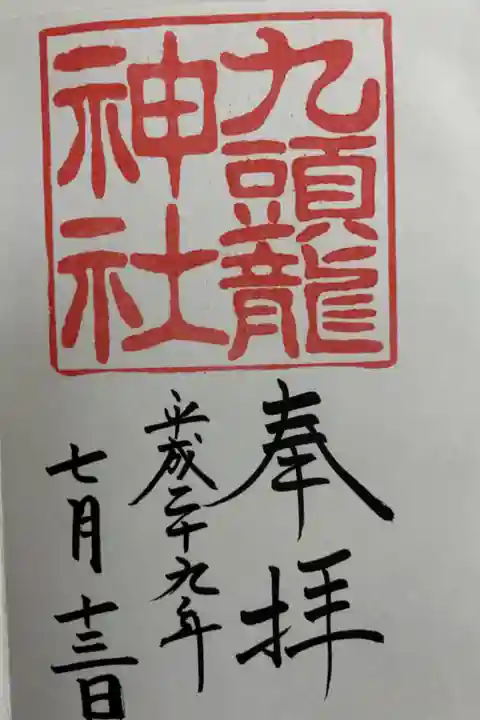 九頭龍
神社
奉拝
平成二十九年
七月十三日